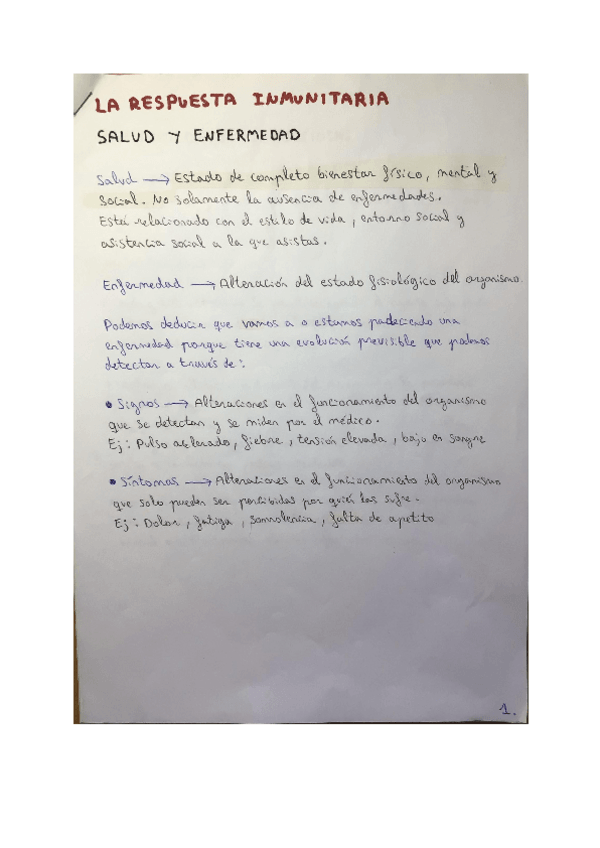 LA RESPUESTA INMUNITARIA
SALUD Y ENFERMEDAD
Salud → Estado de completo bienestar físico, mental y
social. No solamente la ausencia de enfermedades.
Está relacionado con el estilo de vida, entorno social y
asistencia social a la que asistas.
Enfermedad → Alteración del estado fisiológico del organismo.
Podemos deducir que vamos a o estamos padeciendo una
enfermedad porque tiene una evolución previsible que podemos
detectar a través de:
• Signos → Alteraciones en el funcionamiento del organismo
que se detectan y se miden por el médico.
Ej: Pulso acelerado, fiebre, tensión elevada, bajo en sangre
• Síntomas → Alteraciones en el funcionamiento del organismo
que solo pueden ser percibidas por quien las sufre.
Ej: Dolor, fatiga, somnolencia, falta de apetito
1.